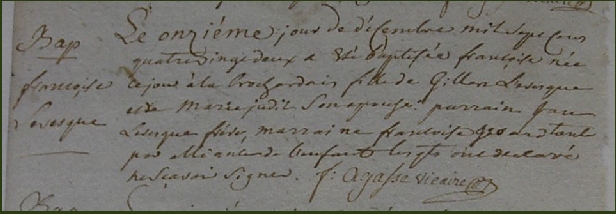 Bap
françoise
Levesque
Le onziéme jour de décembre mil sept cens
quatrevingt deux a été Baptisée francoise née
ce jour à la Brochardais fille de Gilles Levesque
et de Marie judit son epouse. parrain
Levesque frere, marraine francoise tante
par alliance de l'enfant lesqls ont declaré
ne scavoir signer. f: agasse vicaire